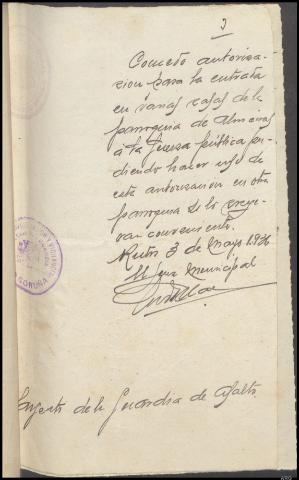 3
Concedo autoriza-
cion para la entrada
en varias casas de la
parroquia de Almeiras
á la fuerza pública pu-
diendo hacer uso de
esta autorizacion en otra
parroquia si lo creye-
ran conveniente.
3 de Mayo 1936
El Juez Municipal
CORUÑA
Sargento de la Guardia de Asalto